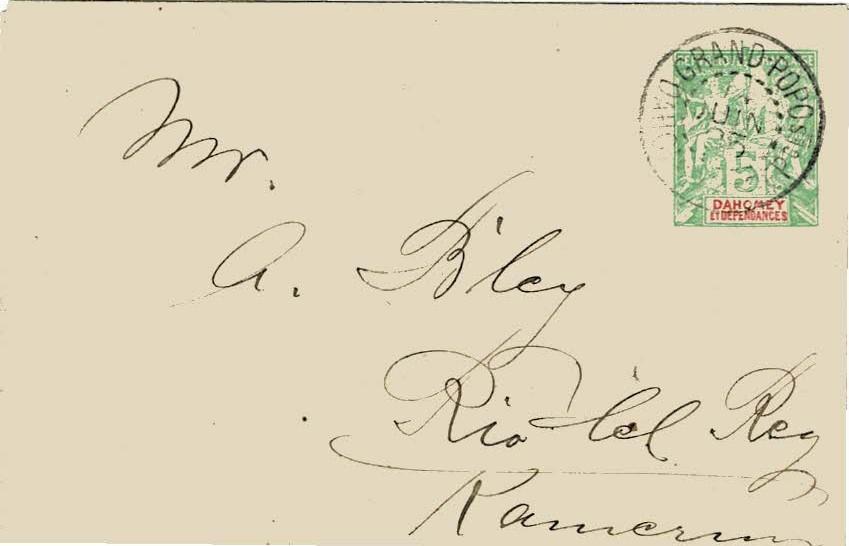 GRAND-POPO
JUIN
5
DAHOMEY
ET DÉPENDANCES
Mr.
A. Bley
Rio del Rey
Kamerun